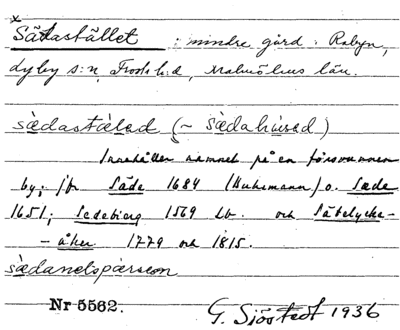 Sätastället : mindre gård i Råbyn,
dyby s:n, Frosta h:d, Malmöhus län.
sädastäled (~ sädahused)
Innehåller namnet på en försvunnen
by; jfr Säde 1684 (Buhrmann) o. Sæde
1651; Sedebierg 1569 Lb. och Säbelycke-
-åker 1779 och 1815.
sædanelspärson
Nr 5562. G. Sjöstedt 1936